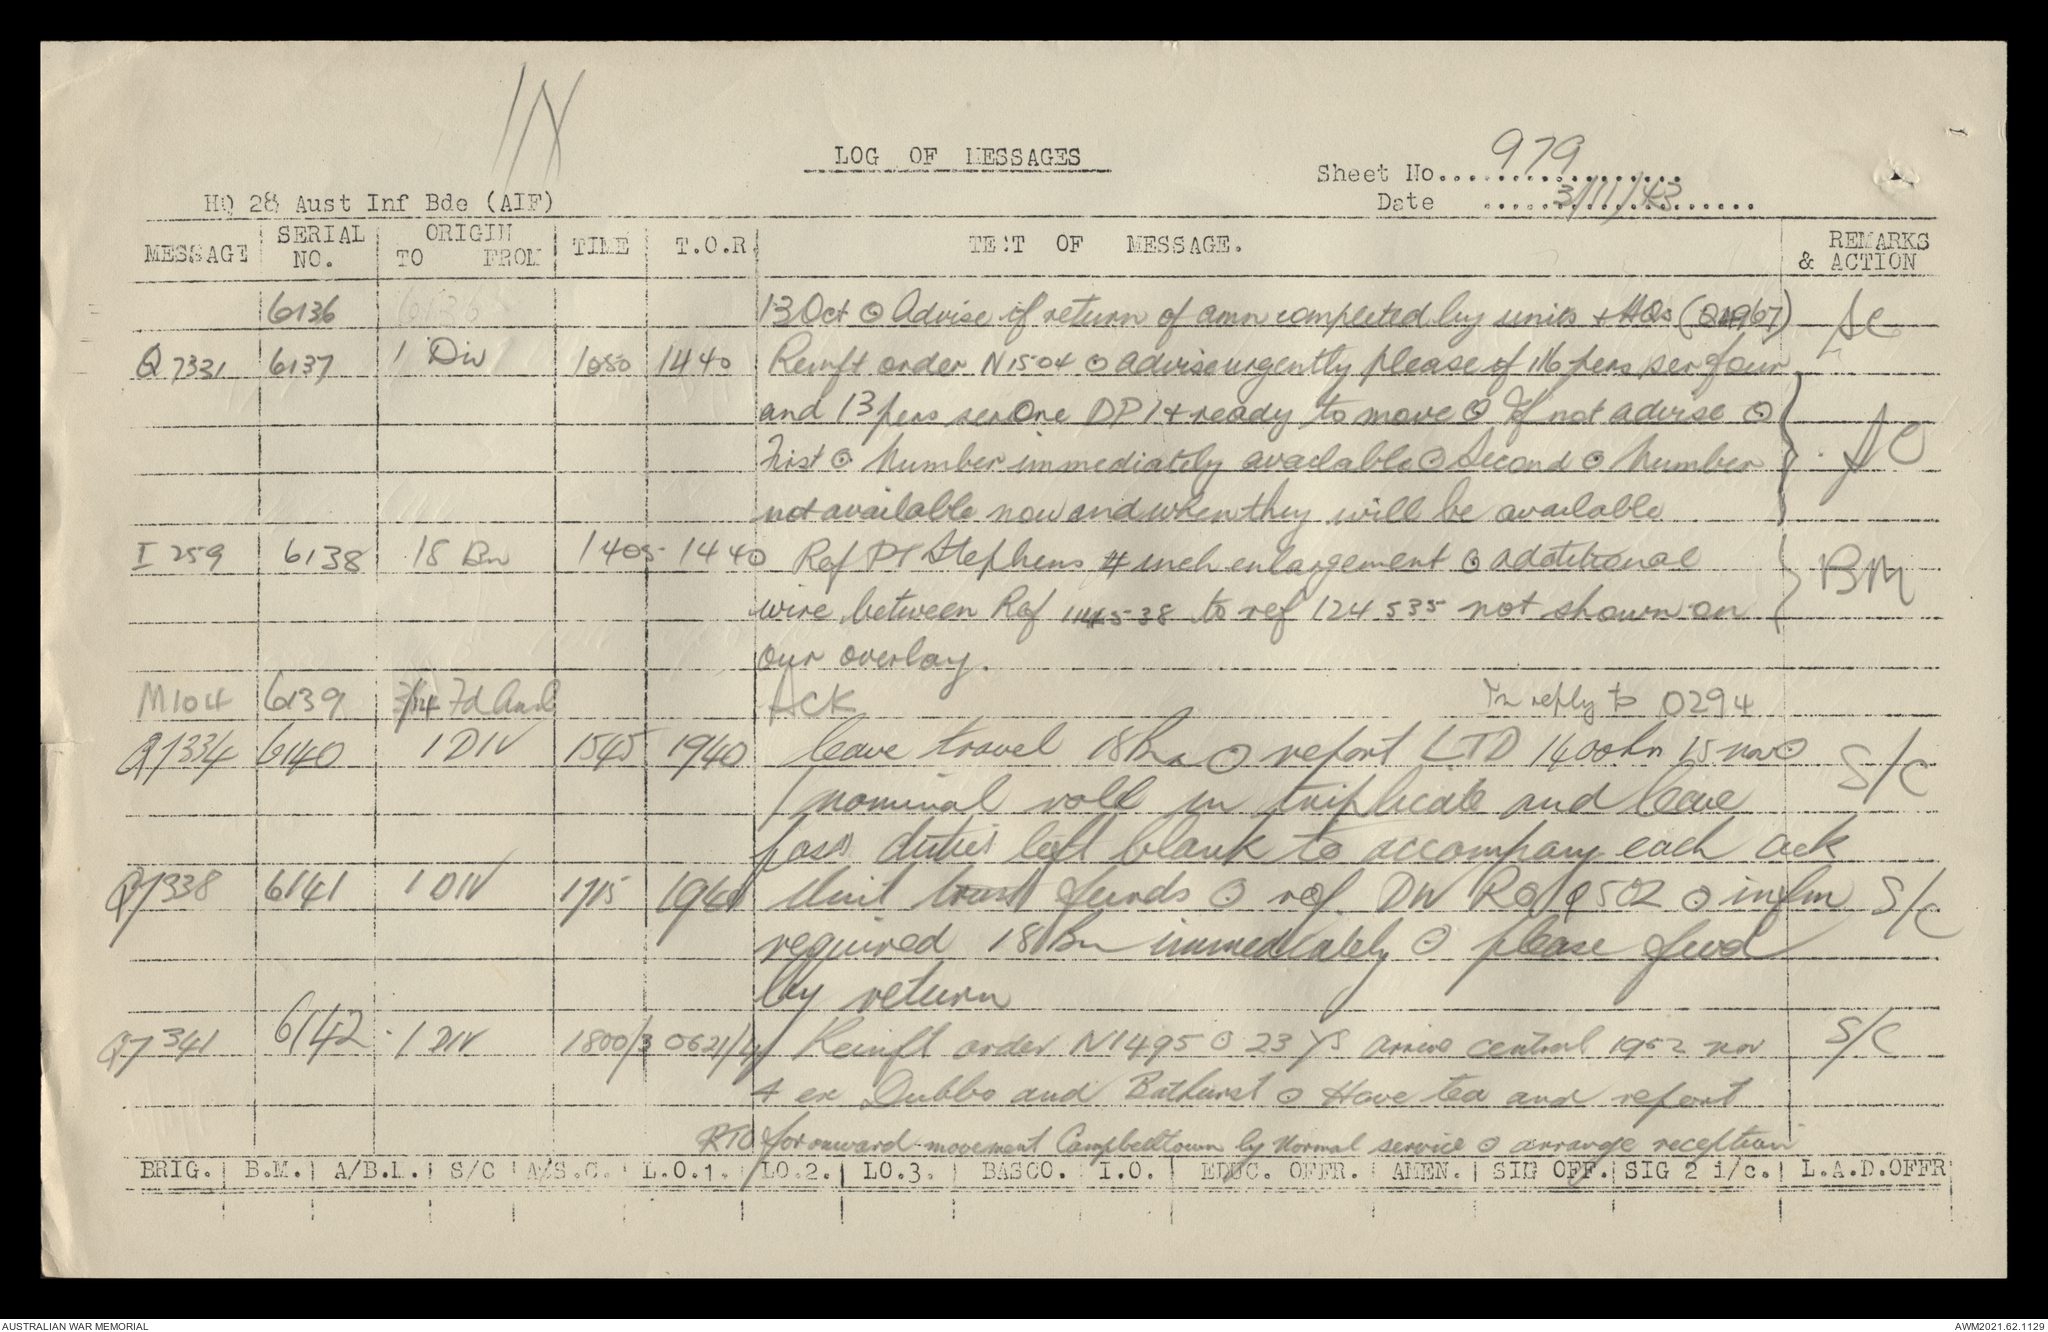 IN
LOG OF MESSAGES
Sheet No. 979
Date 3/11/43
HQ 28 Aust Inf Bde (AIF)
MESSAGE SERIAL NO. ORIGIN TO FROM TIME T.O.R. TEXT OF MESSAGE. REMARKS & ACTION
6136 6136 13 Oct ⊙ Advise if return of amn completed by units + HQs (Q4967) SC
Q7331 6137 1 Div 1050 1440 Reinft order N1504 ⊙ advise urgently please if 116 pers ser four
and 13 pers ser One DP1 + ready to move ⊙ If not advise ⊙ SC
First ⊙ Number immediately available ⊙ Second ⊙ Number
not available now and when they will be available
I 259 6138 18 Bn 1405 1440 Ref PT Stephens 4 inch enlargement ⊙ additional BM
wire between Ref 114538 to ref 124535 not shown on
our overlay.
M104 6139 2/14 Fd Amb ACK In reply to 0294
Q7334 6140 1 DIV 1545 1940 leave travel 18 Bn ⊙ report LTD 1400 hr 15 nov ⊙ S/C
nominal roll in triplicate and leave
pass duties left blank to accompany each ack
Q7338 6141 1 DIV 1715 1940 Unit trust funds ⊙ ref. DIV RO 502 ⊙ infm S/C
required 18 Bn immediately ⊙ please fwd
by return
Q7341 6142 1 DIV 1800/3 0621/4 Reinft order N1495 ⊙ 23 YS arrive central 1952 nov S/C
4 ex Dubbo and Bathurst ⊙ Have tea and report
RTO for onward movement Campbelltown by Normal service ⊙ arrange reception
BRIG. B.M. A/B.M. S/C A/S.C. L.O.1. LO.2. LO.3. BASCO. I.O. EDUC. OFFR. AMEN. SIG OFF. SIG 2 i/c. L.A.D.OFFR
AUSTRALIAN WAR MEMORIAL AWM2021.62.1129